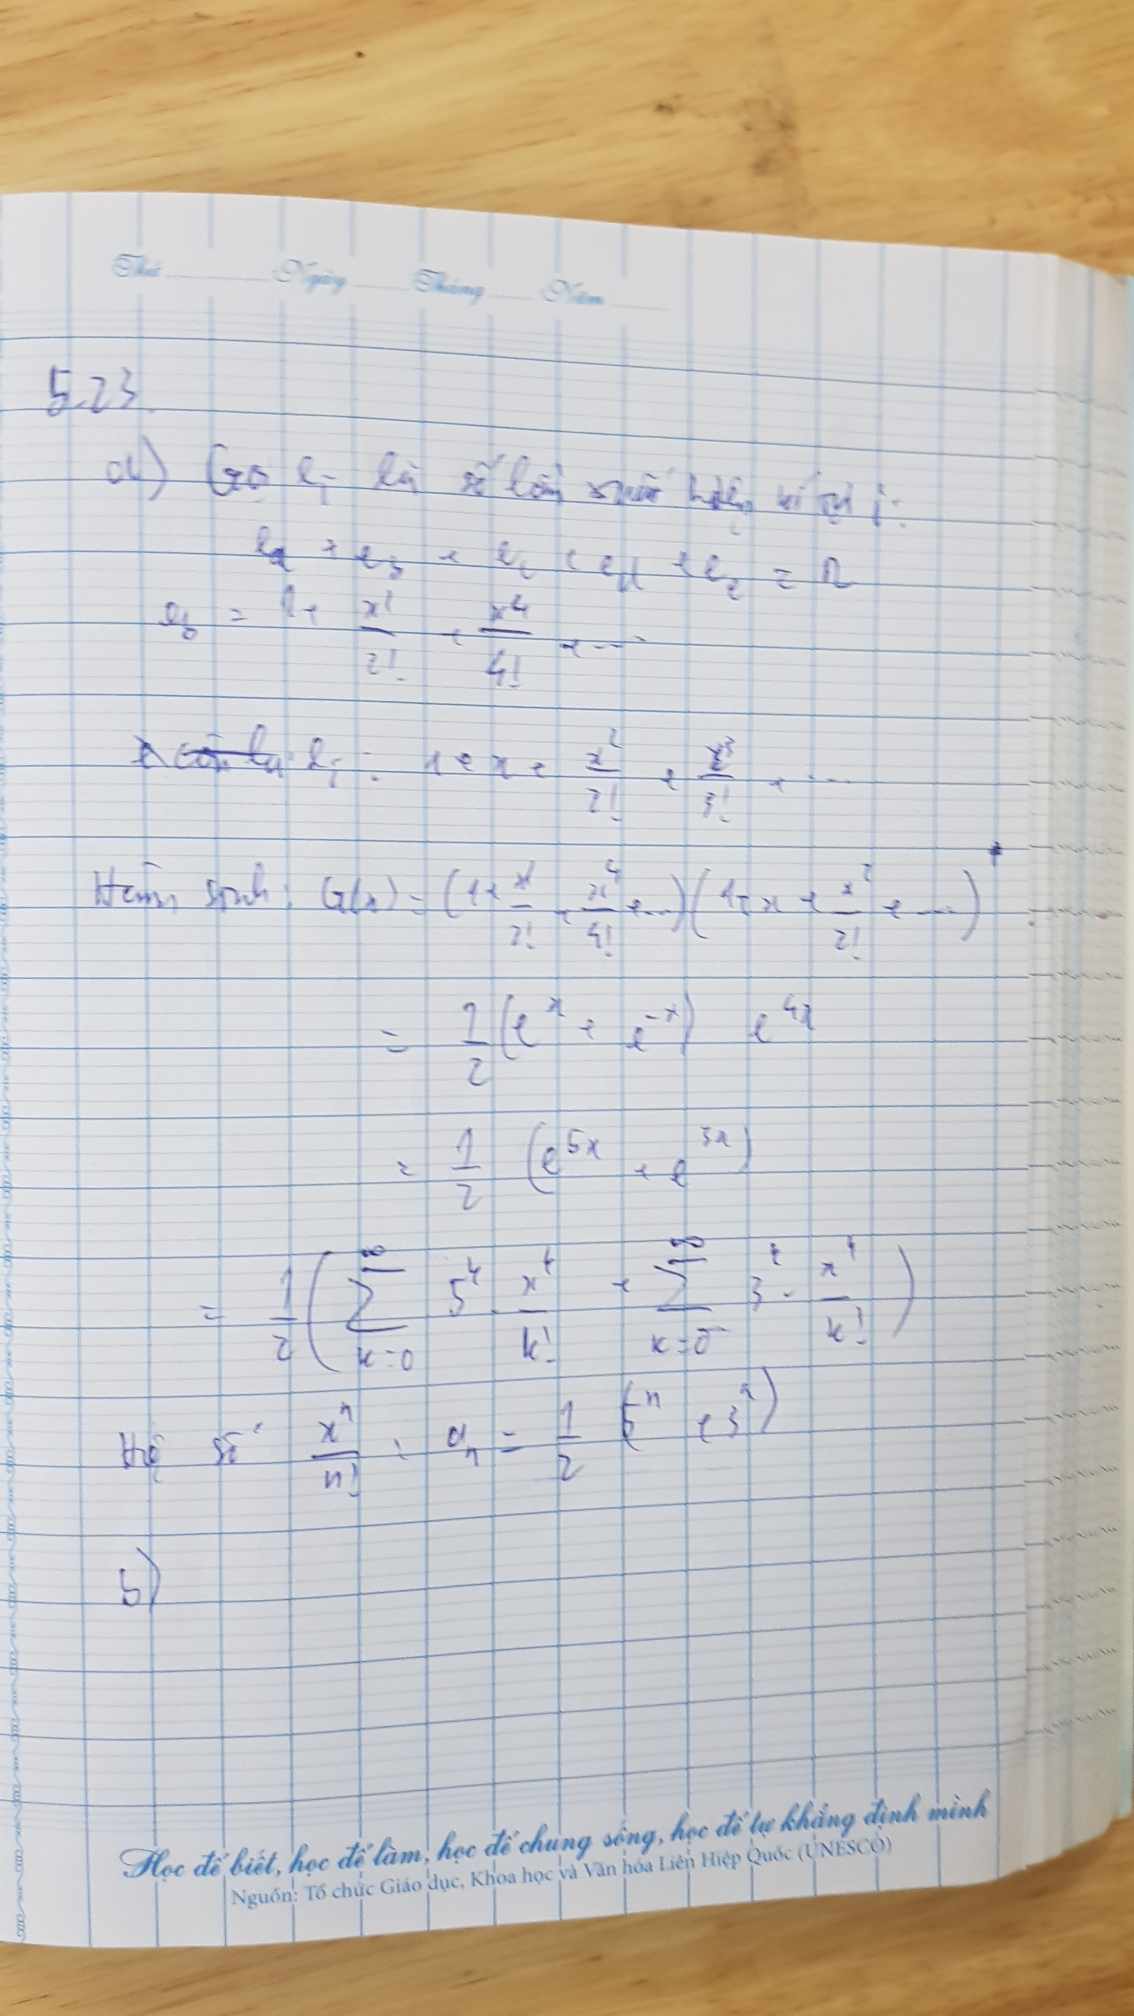 Thứ Ngày Tháng Năm
5.23.
a) Gọi eᵢ là số lần xuất hiện kí tự i:
e_a + e_b + e_c + e_d + e_e = n
e_b = 1 + x^2/2! + x^4/4! + ...
eᵢ : 1 + x + x^2/2! + x^3/3! + ...
Hàm sinh: G(x) = (1 + x^2/2! + x^4/4! + ...)(1 + x + x^2/2! + ...)
= 1/2 (e^x + e^-x) e^4x
= 1/2 (e^5x + e^3x)
= 1/2 ( ∑_{k=0}^∞ 5^k . x^k/k! + ∑_{k=0}^∞ 3^k . x^k/k! )
Hệ số x^n/n! : a_n = 1/2 (5^n + 3^n)
b)
Học để biết, học để làm, học để chung sống, học để tự khẳng định mình
Nguồn: Tổ chức Giáo dục, Khoa học và Văn hóa Liên Hiệp Quốc (UNESCO)